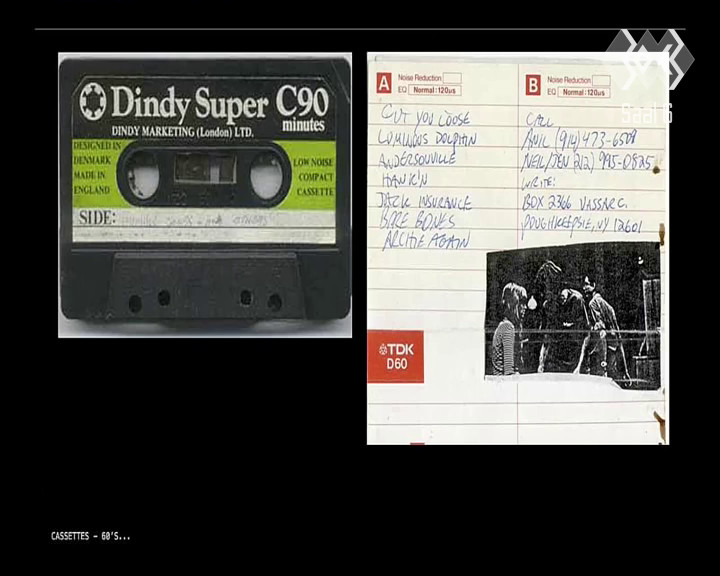 Dindy Super C90
minutes
DINDY MARKETING (London) LTD.
DESIGNED IN
DENMARK
MADE IN
ENGLAND
LOW NOISE
COMPACT
CASSETTE
SIDE:
A
Noise Reduction
EQ Normal:120µs
CUT YOU LOOSE
LUMINOUS DOLPHIN
ANDERSONVILLE
HANK'N
JACK INSURANCE
BARE BONES
ARCHIE AGAIN
TDK
D60
B
Noise Reduction
EQ Normal:120µs
CALL
ANIL (914) 473-6508
NEIL/JEN (212) 995-0825
WRITE:
BOX 2366 VASSAR C.
POUGHKEEPSIE, NY 12601
Saal 6
CASSETTES – 60'S...